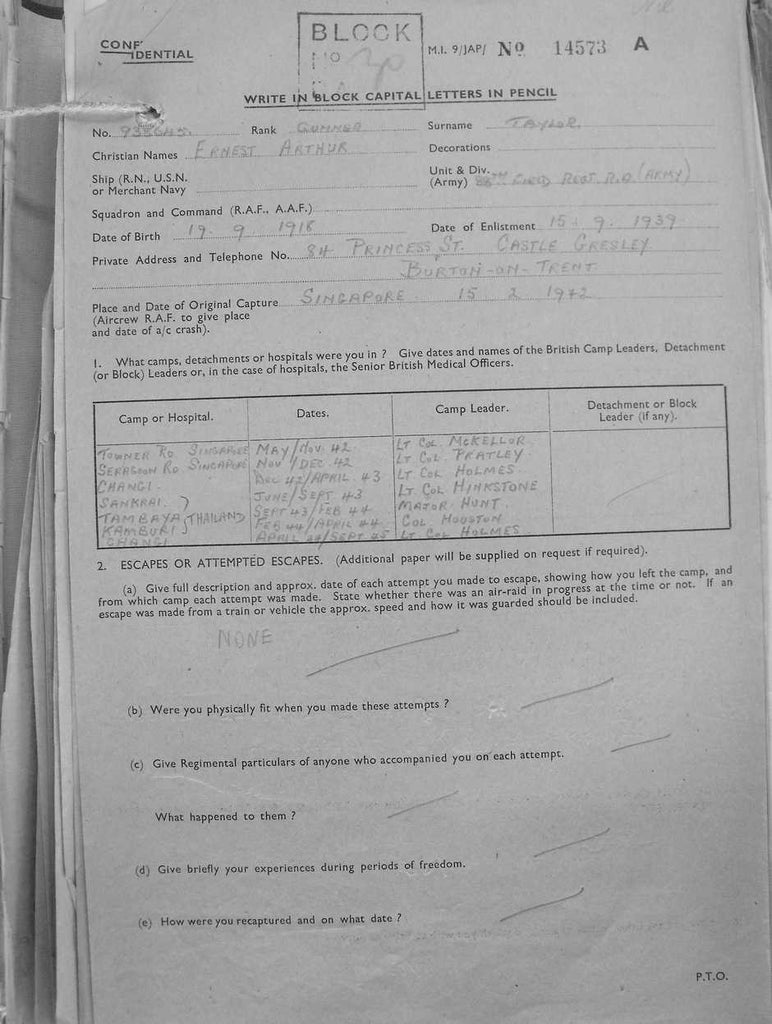 CONF'
IDENTIAL
BLOCK
NO
M.I. 9/JAP/ No 14573 A
WRITE IN BLOCK CAPITAL LETTERS IN PENCIL
No. Rank GUNNER Surname TAYLOR
Christian Names ERNEST ARTHUR Decorations
Ship (R.N., U.S.N.
or Merchant Navy
Unit & Div.
(Army) REGT. R.A. (ARMY)
Squadron and Command (R.A.F., A.A.F.)
Date of Birth 19. 9. 1918 Date of Enlistment 15. 9. 1939
Private Address and Telephone No. 84 PRINCESS ST. CASTLE GRESLEY
BURTON-ON-TRENT
Place and Date of Original Capture SINGAPORE 15 2 1942
(Aircrew R.A.F. to give place
and date of a/c crash).
1. What camps, detachments or hospitals were you in ? Give dates and names of the British Camp Leaders, Detachment
(or Block) Leaders or, in the case of hospitals, the Senior British Medical Officers.
Camp or Hospital. Dates. Camp Leader. Detachment or Block
Leader (if any).
TOWNER RD SINGAPORE MAY/NOV 42 LT COL MCKELLOR
SERAGOON RD SINGAPORE NOV/DEC 42 LT COL PRATLEY
CHANGI DEC 42/APRIL 43 LT COL HOLMES
SANKRAI ) JUNE/SEPT 43 LT COL HINKSTONE
TAMBAYA } THAILAND SEPT 43/FEB 44 MAJOR HUNT
KAMBURI ) FEB 44/APRIL 44 COL HOUSTON
CHANGI APRIL 44/SEPT 45 LT COL HOLMES
2. ESCAPES OR ATTEMPTED ESCAPES. (Additional paper will be supplied on request if required).
(a) Give full description and approx. date of each attempt you made to escape, showing how you left the camp, and
from which camp each attempt was made. State whether there was an air-raid in progress at the time or not. If an
escape was made from a train or vehicle the approx. speed and how it was guarded should be included.
NONE
(b) Were you physically fit when you made these attempts ?
(c) Give Regimental particulars of anyone who accompanied you on each attempt.
What happened to them ?
(d) Give briefly your experiences during periods of freedom.
(e) How were you recaptured and on what date ?
P.T.O.